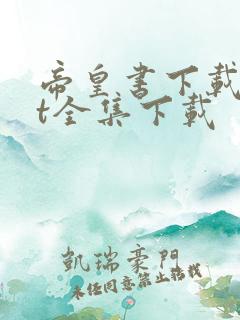 帝皇书下载
t全集下载
凱瑞豪門
未经同意禁止转载